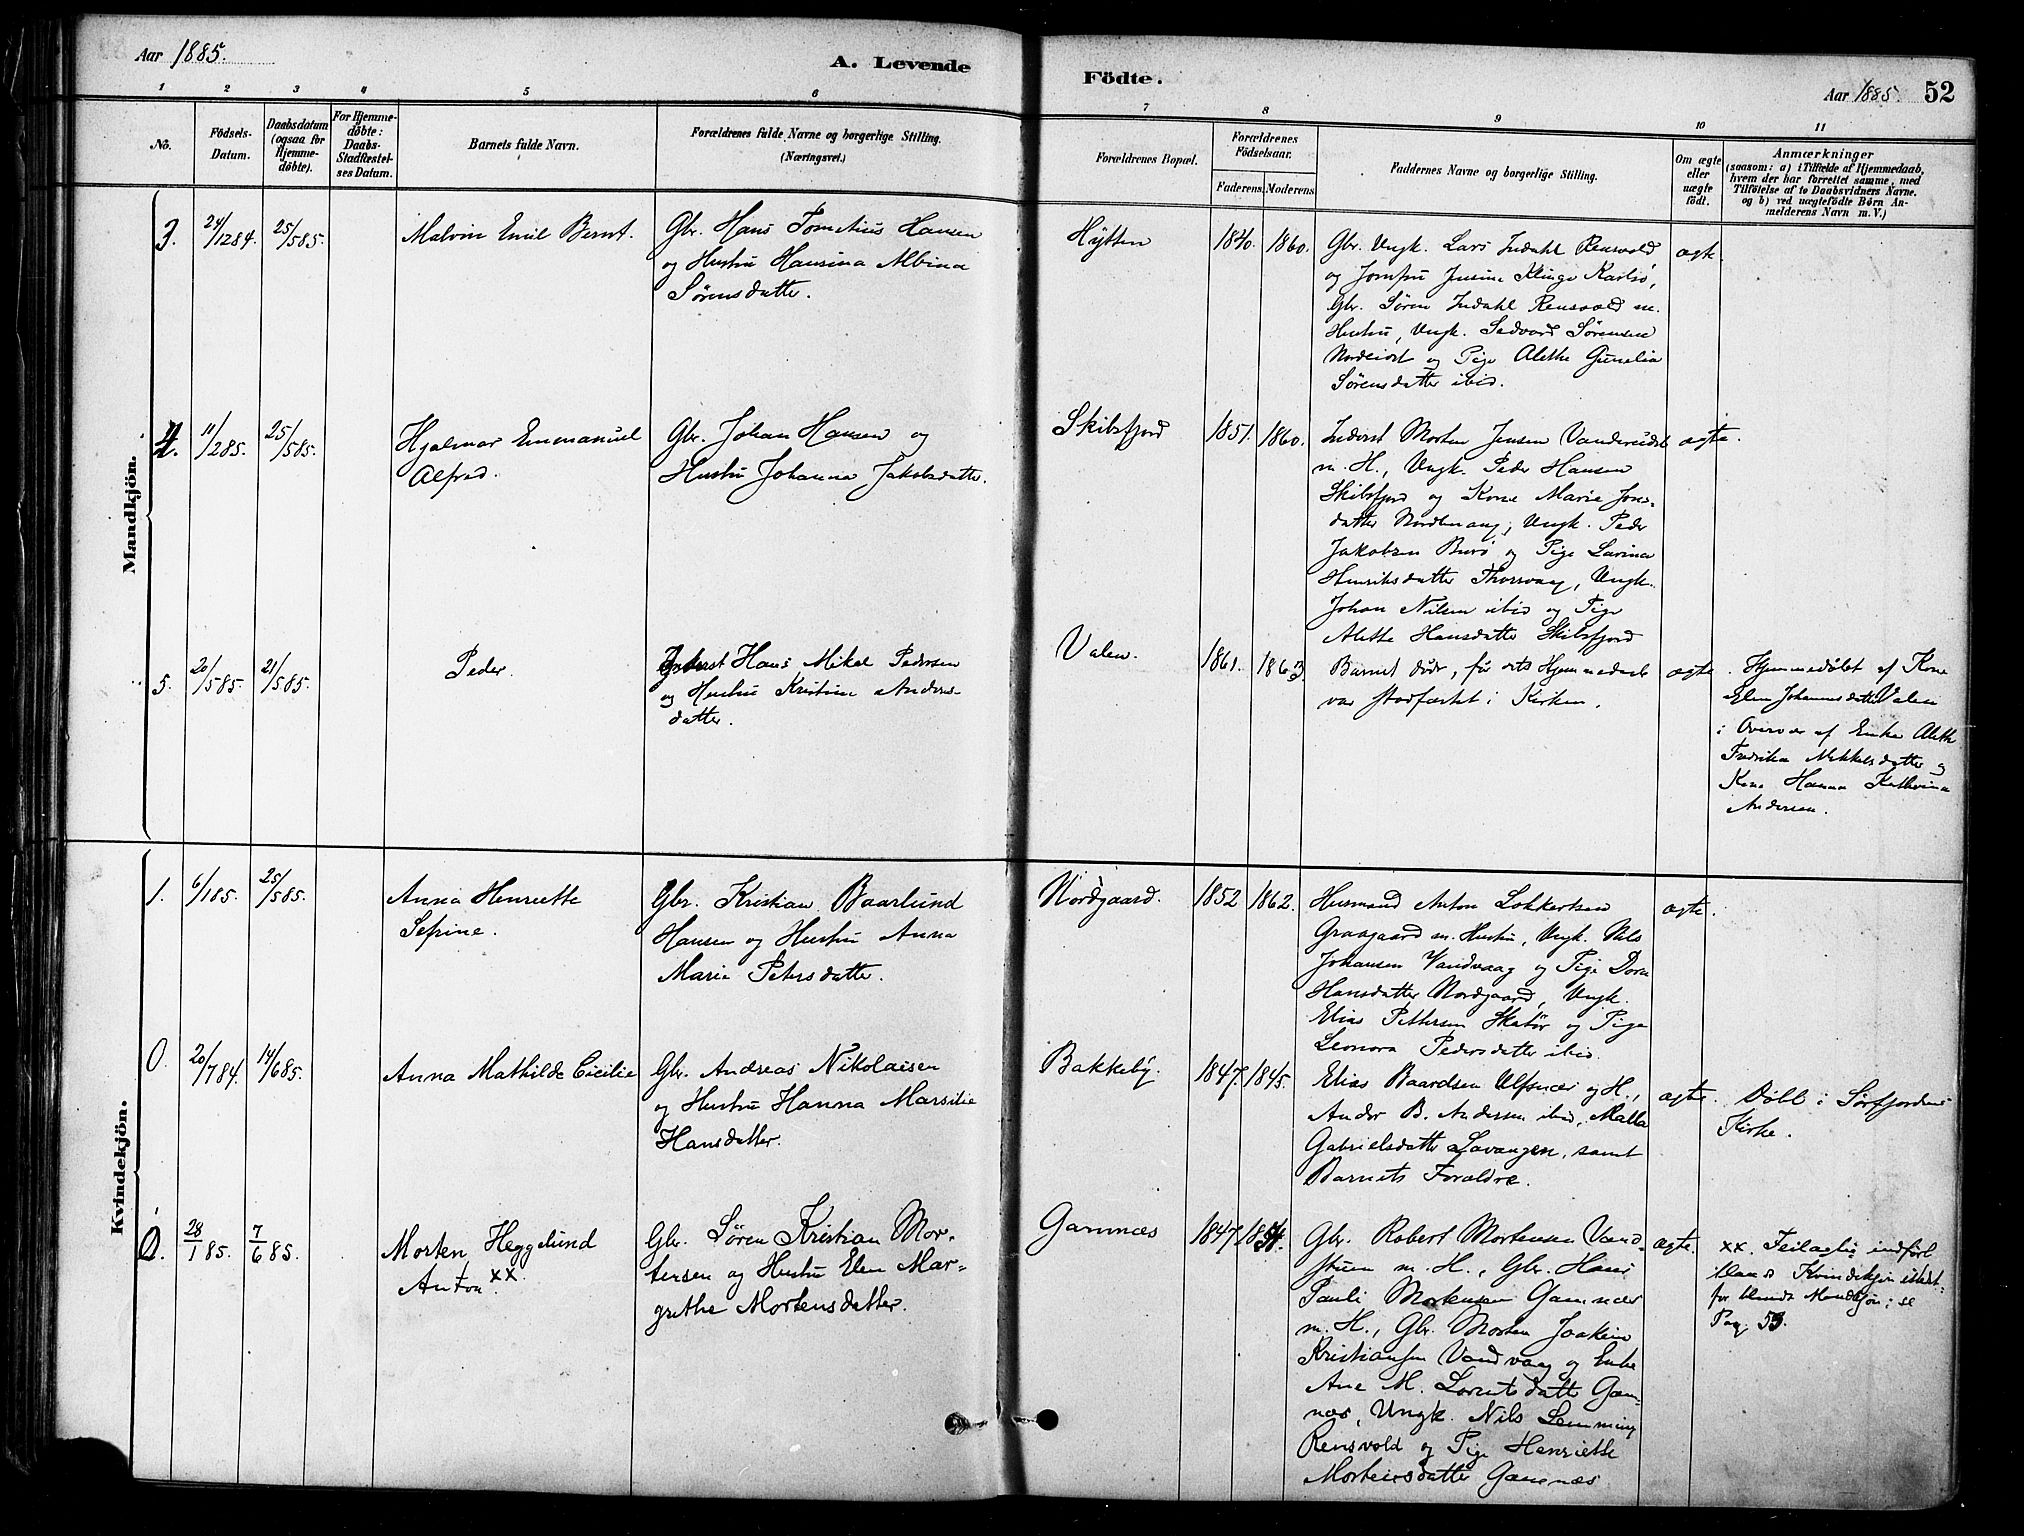 Aar 1885.
A. Levende
Födte.
Aar 1885.
52
1 2 3 4 5 6 7 8 9 10 11
No.
Födsels-
Datum.
Daabsdatum
(ogsaa for
Hjemme-
døbte).
For Hjemme-
døbte:
Daabs-
Stadfæstel-
ses Datum.
Barnets fulde Navn.
Forældrenes fulde Navne og borgerlige Stilling.
(Næringsvei.)
Forældrenes Bopæl.
Forældrenes
Födselsaar.
Faderens. Moderens.
Faddernes Navne og borgerlige Stilling.
Om ægte
eller
uægte
födt.
Anmærkninger
(saasom: a) i Tilfælde af Hjemmedaab,
hvem der har forrettet samme, med
Tilföielse af to Daabsvidners Navne.
og b) ved uægtefödte Börn An-
melderens Navn m. V.)
Mandkjön.
3.
24/1284.
25/585.
Malvin Emil Bernt.
Gbr. Hans Hansen
og Hustru Hansina Albina
Sørensdatter.
Hÿtten
1840.
1860.
Gbr. Ungk. Lars Indahl Rensvold
og Jomfru Jusine Klinge Karlsö,
Gbr. Søren Indahl Rensvold m.
Hustru, Ungk. Sedvard Sørensen
og Pige Alethe
Sørensdatter ibid.
ægte.
4.
11/285.
25/585.
Hjalmar Emmanuel
Alfred.
Gbr. Johan Hansen og
Hustru Johanna Jakobsdatter.
Skibsfjord
1851.
1860.
Inderst Morten Jensen
m. H., Ungk. Peder Hansen
Skibsfjord og Kone Marie Jens-
datter Ungk. Peder
Jakobsen Burö og Pige Lavina
Henriksdatter Thorsvaag, Ungk.
Johan Nilsen ibid og Pige
Alette Hansdatter Skibsfjord
ægte.
5.
20/585.
21/585.
Peder.
Inderst Hans Mikal Pedersen
og Hustru Kristine Anders-
datter.
Valen.
1861.
1863.
Barnet døde, før dets Hjemmedaab
var stadfæstet i Kirken.
ægte.
Hjemmedøbt af Kone
Elen Johannesdatter Valen
i Overvær af Enke Aleth
Fredrika Mikkelsdatter og
Kone Hanna Kathrina
Andersen.
Kvindekjön.
1.
6/185.
25/585.
Anna Henriette
Sefine.
Gbr. Kristian Baarlund
Hansen og Hustru Anna
Marie Petersdatter.
Nordgaard.
1852
1862.
Husmand Anton Lokkertsen
Graagaard m. Hustru, Ungk. Nils
Johansen Vandvaag og Pige Dora
Hansdatter Nordgaard, Ungk.
Elias Pettersen Skatör og Pige
Leonora Pedersdatter ibid.
ægte.
0
20/784.
14/685.
Anna Mathilde Cicilie
Gbr. Andreas Nikolaisen
og Hustru Hanna Marsilie
Hansdatter.
Bakkeby.
1847.
1845.
Elias Baardsen Ulfsnæs og H.,
Ander B. Andersen ibid, Malla
Gabrielsdatter Lavangen, samt
Barnets Forældre.
ægte.
Døbt i Sørfjordens
Kirke.
0.
28/1 85.
7/6 85.
Morten Heggelund
Anton xx.
Gbr. Sören Kristian Mor-
tensen og Hustru Elen Mar-
grethe Mortensdatter.
Gamnæs
1847.
1854.
Gbr. Robert Mortensen Vand-
stuen m. H., Gbr. Hans
Pauli Mortensen Gamnæs
m. H., Gbr. Morten Joakim
Kristiansen Vandvaag og Enke
Ane M. Lorntsdatter Gam-
næs, Ungk. Nils Lemming
Rensvold og Pige Henriette
Mortensdatter Gamnæs
ægte.
xx. Feilagtig indført
blandt Kvindekjøn istedet
for blandt Mandkjøn; se
Pag. 53.